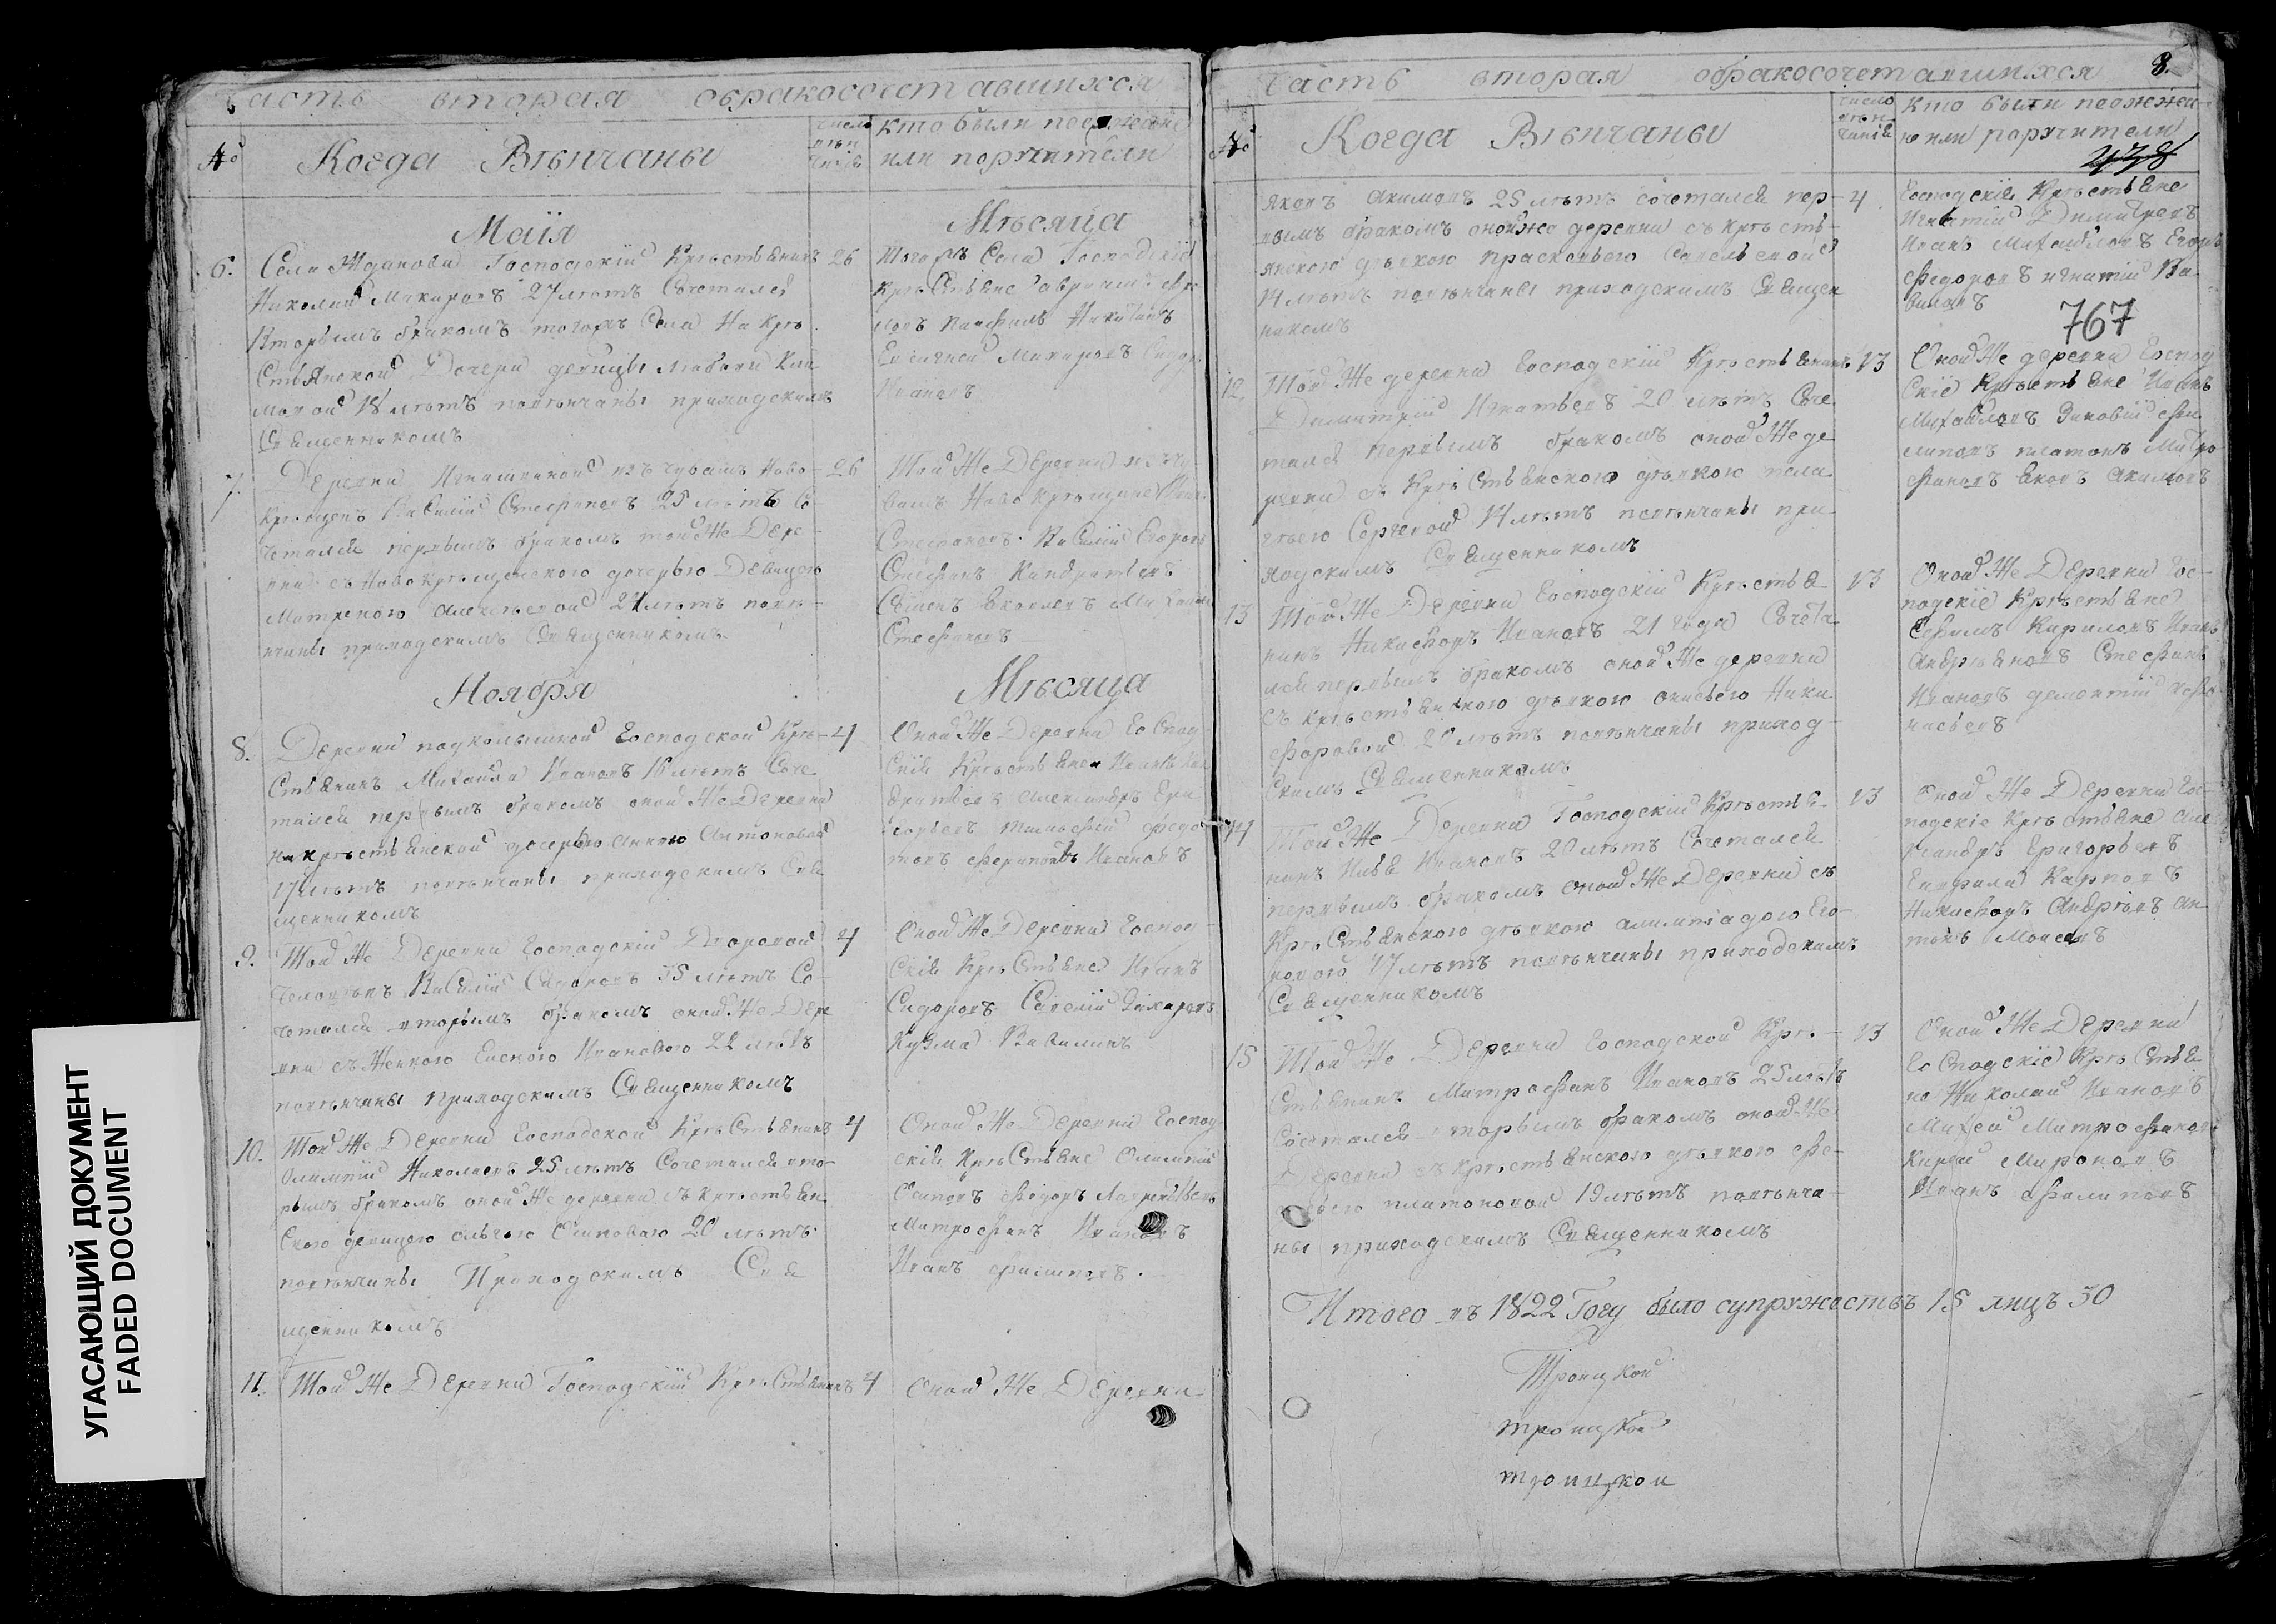 УГАСАЮЩИЙ ДОКУМЕНТ
FADED DOCUMENT
Часть вторая обракосочетавшихся
№
Когда Вѣнчаны
число вѣнчанія
кто были поезжане
или поручители
Маія Мѣсяца
6. Села Жданова Господскій Крѣстьянинъ 26
Николай Макаровъ 27 лѣтъ Сочетался
Вторымъ бракомъ тогожъ Села На Крѣ
стьянской Дочери девицы
18 лѣтъ повѣнчаны приходскимъ
Священникомъ
Тогожъ Села Господскіе
Крѣстьяне
Никитинъ
Макаровъ Сидоръ
Ивановъ
7. Деревни изъ чувашъ Ново- 26
крѣщенъ Василій Стефановъ 25 лѣтъ Со-
четался первымъ бракомъ той Же Дере-
вни съ Новокрѣщенскою дочерью Девицою
Матреною Алексѣевой лѣтъ повѣ-
нчаны приходскимъ Священникомъ
Той Же Деревни изъ чу-
вашъ Новокрѣщене
Стефановъ Василій Егоровъ
Стефанъ Кандратьевъ
Семенъ Яковлевъ
Стефановъ
Ноября Мѣсяца
8. Деревни Господской Крѣ- 4
стьянинъ Михайла Ивановъ 18 лѣтъ Соче
тался первымъ бракомъ оной Же Деревни
на крѣстьянской дочерью Анною Антоновой
17 лѣтъ повѣнчаны приходскимъ Свя
щенникомъ
Оной Же Деревни Господ
скіе Крѣстьяне Иванъ
Александръ Гри
горьевъ Тимофей Федо
товъ Ивановъ
9. Той Же Деревни Господскій Дворовой 4
человѣкъ Василій 35 лѣтъ Со-
четался вторымъ бракомъ оной Же Дере
вни съ Женкою Ивановою 22 лѣтъ
повѣнчаны Приходскимъ Священникомъ
Оной Же Деревни Господ-
скіе Крѣстьяне Иванъ
Сидоровъ Савелій Захаровъ
Кузма Вавилинъ
10. Той Же Деревни Господской Крѣстьянинъ 4
Олимпій Николаевъ 25 лѣтъ Сочетался вто-
рымъ бракомъ оной Же деревни съ крѣстьян
скою девицою Осиповою 20 лѣтъ
повѣнчаны Приходскимъ Свя
щенникомъ
Оной Же Деревни Господ
скіе Крѣстьяне Олимпій
Осиповъ Федоръ Лаврентьевъ
Митрофанъ Ивановъ
Иванъ Филиповъ.
11. Той Же Деревни Господскій Крѣстьянинъ 4
Оной Же Деревни
Часть вторая обракосочетавшихся 8.
№
Когда Вѣнчаны
число вѣнчанія
кто были поезжан-
ю или поручители
438
Яковъ Акимовъ 25 лѣтъ сочетался пер- 4
вымъ бракомъ онойже деревни съ крѣсть-
янскою дѣвкою Прасковьею Савельевой
14 лѣтъ повѣнчаны приходскимъ Священ
никомъ
Господскіе Крѣстьяне
Игнатій Димитревъ
Иванъ Михайловъ Егоръ
Федоровъ Игнатій Ва-
виловъ
767
12. Той Же деревни Господскій Крѣстьянинъ 13
Димитрій Игнатьевъ 20 лѣтъ Соче
тался первымъ бракомъ оной Же де
ревни съ Крѣстьянскою дѣвкою Пела
геею Сергевой 14 лѣтъ повѣнчаны при
ходскимъ Священникомъ
Оной Же деревни Господ
скіе Крѣстьяне Иванъ
Михайловъ Зиновій Фи
липовъ Платонъ Митро
фановъ Яковъ Акимовъ
13 Той Же Деревни Господскій Крѣстья- 13
нинъ Никифоръ Ивановъ 21 года Сочета
лся первымъ бракомъ оной Же деревни
съ крѣстьянскою дѣвкою Анисьею Ники
форовой лѣтъ повѣнчаны приход-
скимъ Священникомъ
Оной Же Деревни Гос-
подскіе Крѣстьяне
Ефимъ Кириловъ Иванъ
Андрѣяновъ Стефанъ
Ивановъ Дементій Афо-
насьевъ
14 Той Же Деревни Господскій Крѣстья- 13
нинъ Илья Ивановъ 20 лѣтъ Сочетался
первымъ бракомъ оной Же Деревни съ
Крѣстьянскою дѣвкою Алимпіадою Его-
ровой 17 лѣтъ повѣнчаны приходскимъ
Священникомъ
Оной Же Деревни Гос-
подскіе Крѣстьяне Але
ксандръ Григорьевъ
Гаврила Карповъ
Никифоръ Андрѣевъ Ан
тонъ Моисевъ
15 Той Же Деревни Господской Крѣ- 13
стьянинъ Митрофанъ Ивановъ 25 лѣтъ
Сочетался вторымъ бракомъ оной Же
Деревни съ крѣстьянскою дѣвкою Фе-
Платоновой 19 лѣтъ повѣнча-
ны приходскимъ Священникомъ
Оной Же Деревни
Господскіе Крѣстья
не Николай Ивановъ
Михей Митрофановъ
Мироновъ
Иванъ Филиповъ
Итого въ 1822 Году было супружествъ 15 лицъ 30
Троицкой
троицкой
троицкой